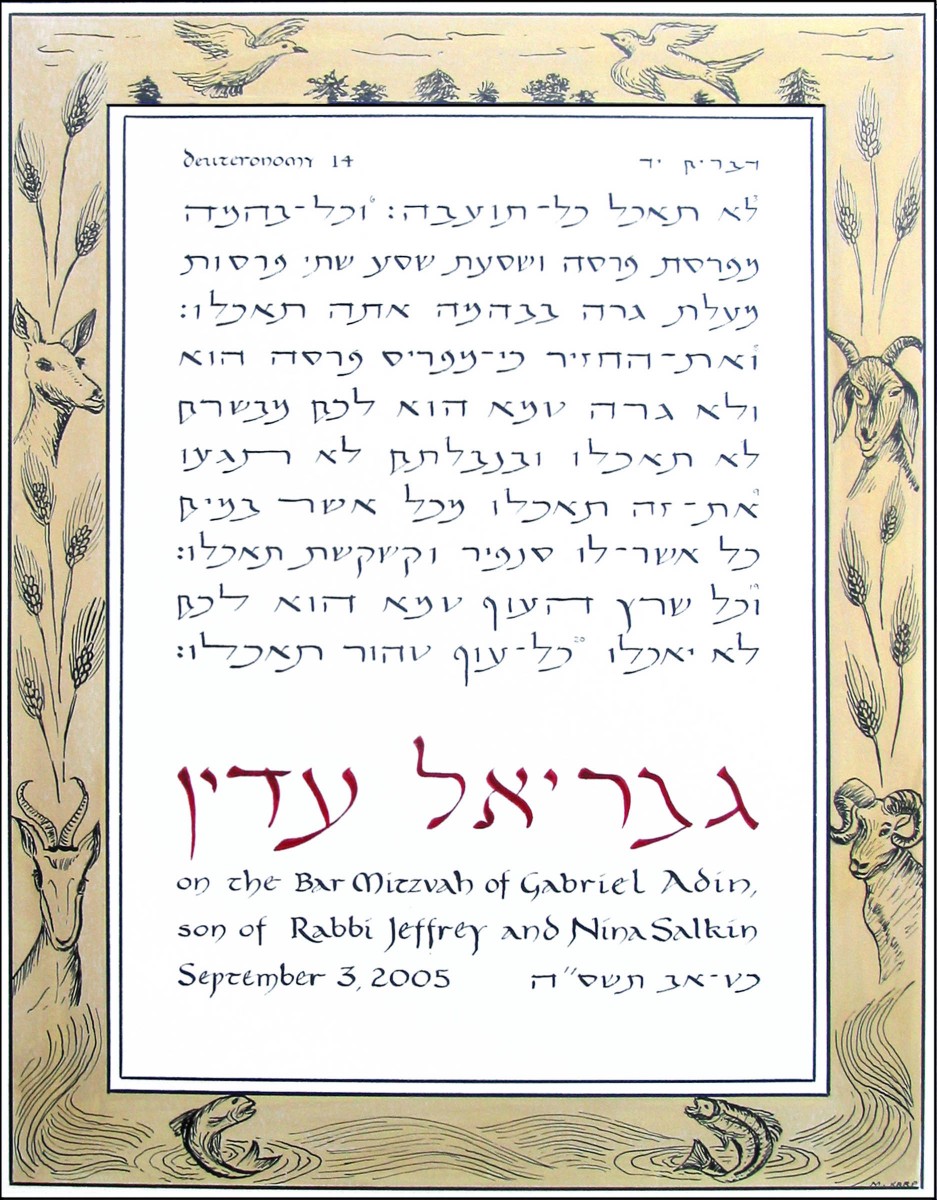 Deuteronomy 14 דברים יד
לא תאכל כל-תועבה: ⁶וכל-בהמה
מפרסת פרסה ושסעת שסע שתי פרסות
מעלת גרה בבהמה אתה תאכלו:
ואת-החזיר כי-מפריס פרסה הוא
ולא גרה טמא הוא לכם מבשרם
לא תאכלו ובנבלתם לא תגעו
את-זה תאכלו מכל אשר במים
כל אשר-לו סנפיר וקשקשת תאכלו:
וכל שרץ העוף טמא הוא לכם
לא יאכלו ²⁰כל-עוף טהור תאכלו:
גבריאל עדין
on the Bar Mitzvah of Gabriel Adin,
son of Rabbi Jeffrey and Nina Salkin
September 3, 2005 כט-אב תשס״ה
M. KARP